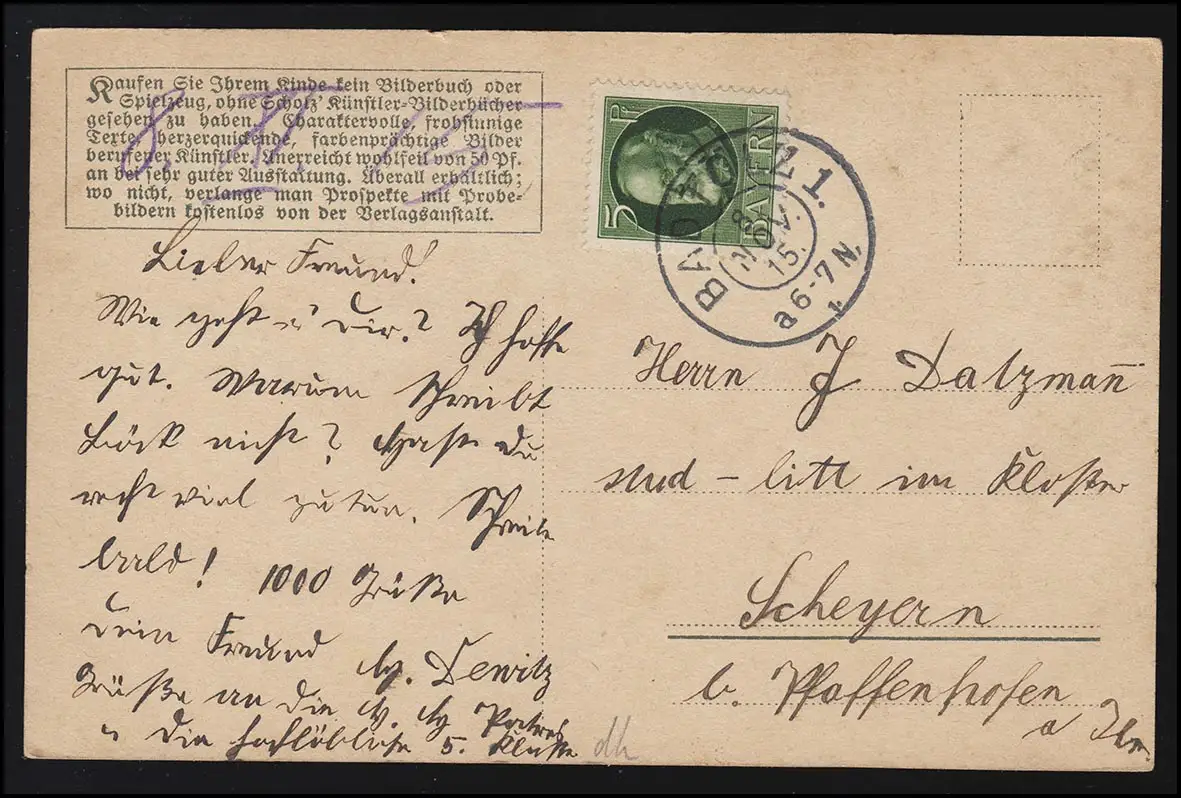 Kaufen Sie Ihrem Kinde kein Bilderbuch oder
Spielzeug, ohne Scholz' Künstler-Bilderbücher
gesehen zu haben. Charaktervolle, frohsinnige
Texte, herzerquickende, farbenprächtige Bilder
berufener Künstler. Unerreicht wohlfeil von 50 Pf.
an bei sehr guter Ausstattung. Überall erhältlich;
wo nicht, verlange man Prospekte mit Probe-
bildern kostenlos von der Verlagsanstalt.
5 Pf
BAYERN
BAD TÖLZ 1.
8 NOV. 15.
a 6-7 N.
Lieber Freund!
Wie geht's Dir? Ich hoffe
gut. Warum schreibt
Böck nicht? Hast du
recht viel zu tun. Schreibe
bald! 1000 Grüße
Dein Freund
Hg. Dewitz
Grüße an die H. Hg Patres
u die hochlöbliche 5. Klasse
Herrn J Datzmañ
stud-litt im Kloster
Scheyern
b. Pfaffenhofen
a Ilm.
dh